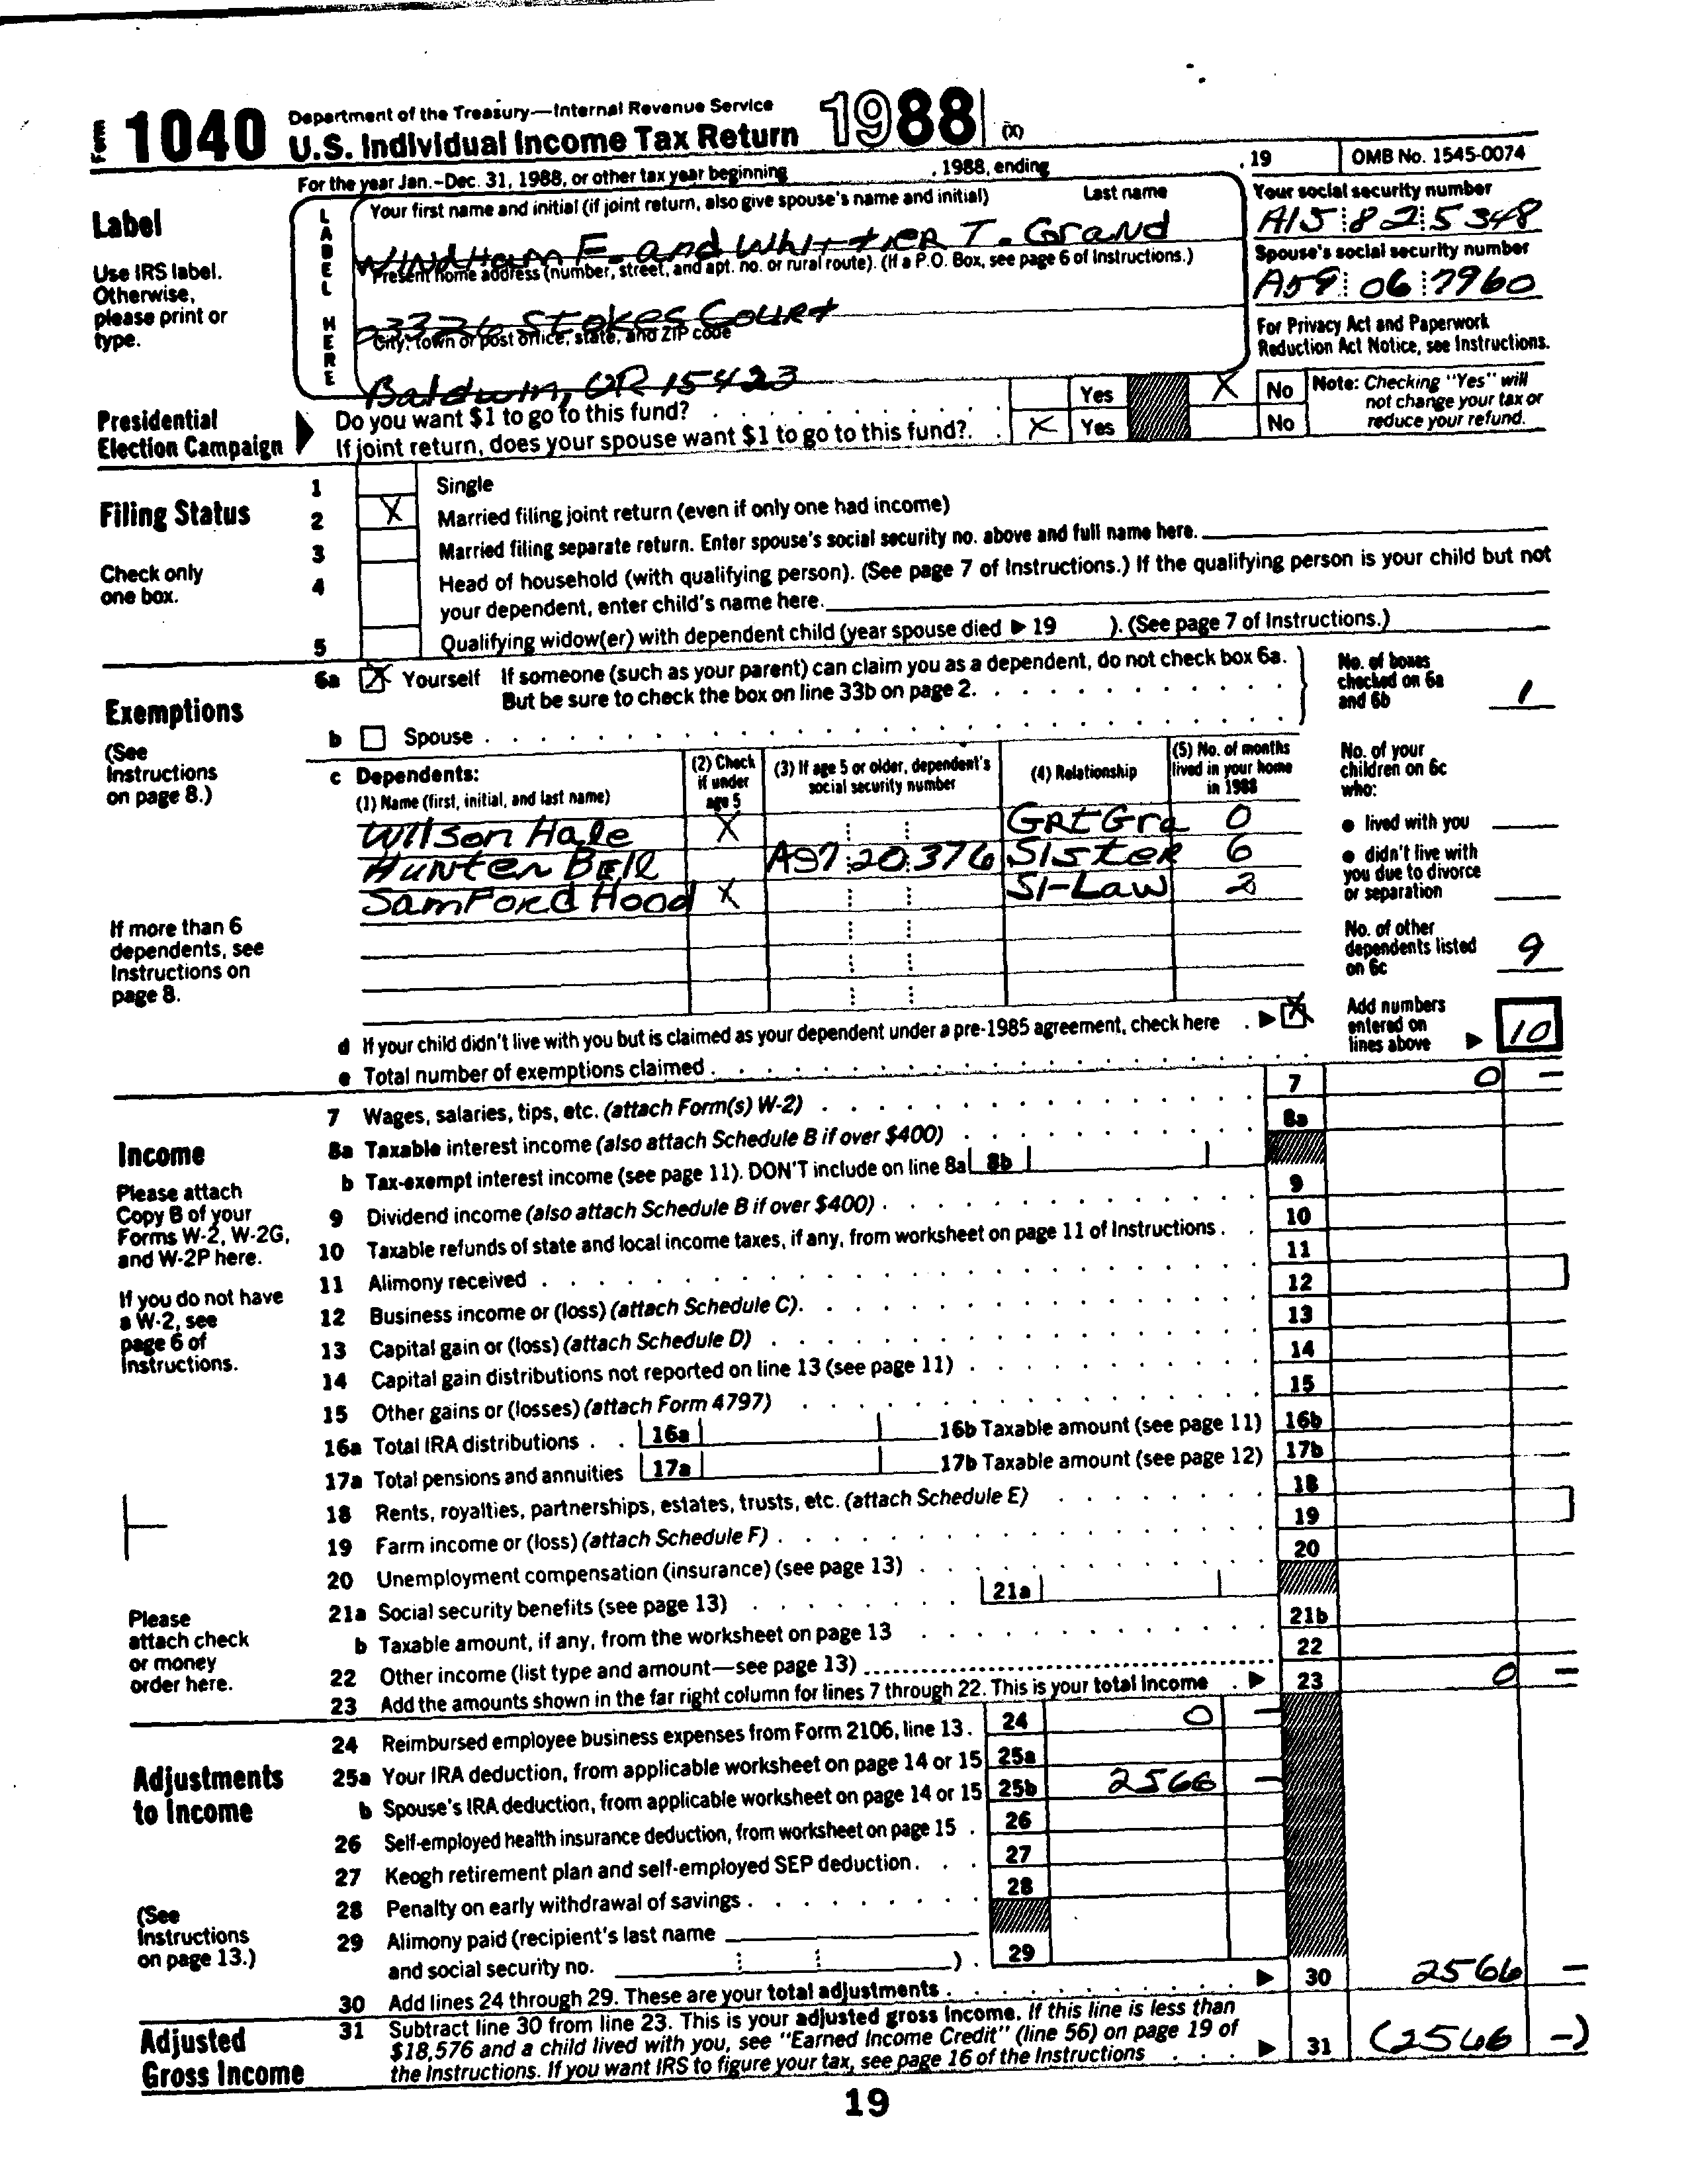 Form 1040 Department of the Treasury—Internal Revenue Service
U.S. Individual Income Tax Return 1988 (X)
For the year Jan.–Dec. 31, 1988, or other tax year beginning , 1988, ending , 19 OMB No. 1545-0074
Label
Use IRS label.
Otherwise,
please print or
type.
LABEL HERE
Your first name and initial (if joint return, also give spouse's name and initial) Last name
WINdHam F. and WhittieR T. Grand
Present home address (number, street, and apt. no. or rural route). (If a P.O. Box, see page 6 of Instructions.)
23326 Stokes Court
City, town or post office, state, and ZIP code
Baldwin, OR 15423
Your social security number
A15 82 5348
Spouse's social security number
A59 06 7960
For Privacy Act and Paperwork
Reduction Act Notice, see Instructions.
Presidential
Election Campaign
Do you want $1 to go to this fund? Yes X No
If joint return, does your spouse want $1 to go to this fund? X Yes No
Note: Checking "Yes" will
not change your tax or
reduce your refund.
Filing Status
Check only
one box.
1 Single
2 X Married filing joint return (even if only one had income)
3 Married filing separate return. Enter spouse's social security no. above and full name here.
4 Head of household (with qualifying person). (See page 7 of Instructions.) If the qualifying person is your child but not
your dependent, enter child's name here.
5 Qualifying widow(er) with dependent child (year spouse died ▶ 19 ). (See page 7 of Instructions.)
Exemptions
(See
Instructions
on page 8.)
6a X Yourself If someone (such as your parent) can claim you as a dependent, do not check box 6a.
But be sure to check the box on line 33b on page 2.
b Spouse
No. of boxes
checked on 6a
and 6b 1
c Dependents:
(1) Name (first, initial, and last name)
(2) Check
if under
age 5
(3) If age 5 or older, dependent's
social security number
(4) Relationship
(5) No. of months
lived in your home
in 1988
Wilson Hale X GRtGra 0
Hunter Bell A97 20 376 Sister 6
Samford Hood X SI-Law 2
If more than 6
dependents, see
Instructions on
page 8.
No. of your
children on 6c
who:
● lived with you
● didn't live with
you due to divorce
or separation
No. of other
dependents listed
on 6c 9
d If your child didn't live with you but is claimed as your dependent under a pre-1985 agreement, check here ▶ X
e Total number of exemptions claimed
Add numbers
entered on
lines above ▶ 10
Income
Please attach
Copy B of your
Forms W-2, W-2G,
and W-2P here.
If you do not have
a W-2, see
page 6 of
Instructions.
Please
attach check
or money
order here.
7 Wages, salaries, tips, etc. (attach Form(s) W-2) 7 0 –
8a Taxable interest income (also attach Schedule B if over $400) 8a
b Tax-exempt interest income (see page 11). DON'T include on line 8a 8b
9 Dividend income (also attach Schedule B if over $400) 9
10 Taxable refunds of state and local income taxes, if any, from worksheet on page 11 of Instructions 10
11 Alimony received 11
12 Business income or (loss) (attach Schedule C) 12
13 Capital gain or (loss) (attach Schedule D) 13
14 Capital gain distributions not reported on line 13 (see page 11) 14
15 Other gains or (losses) (attach Form 4797) 15
16a Total IRA distributions 16a 16b Taxable amount (see page 11) 16b
17a Total pensions and annuities 17a 17b Taxable amount (see page 12) 17b
18 Rents, royalties, partnerships, estates, trusts, etc. (attach Schedule E) 18
19 Farm income or (loss) (attach Schedule F) 19
20 Unemployment compensation (insurance) (see page 13) 20
21a Social security benefits (see page 13) 21a
b Taxable amount, if any, from the worksheet on page 13 21b
22 Other income (list type and amount—see page 13) 22
23 Add the amounts shown in the far right column for lines 7 through 22. This is your total income ▶ 23 0 –
Adjustments
to Income
(See
Instructions
on page 13.)
24 Reimbursed employee business expenses from Form 2106, line 13 24 0 –
25a Your IRA deduction, from applicable worksheet on page 14 or 15 25a
b Spouse's IRA deduction, from applicable worksheet on page 14 or 15 25b 2566 –
26 Self-employed health insurance deduction, from worksheet on page 15 26
27 Keogh retirement plan and self-employed SEP deduction 27
28 Penalty on early withdrawal of savings 28
29 Alimony paid (recipient's last name
and social security no. ) 29
30 Add lines 24 through 29. These are your total adjustments ▶ 30 2566 –
Adjusted
Gross Income
31 Subtract line 30 from line 23. This is your adjusted gross income. If this line is less than
$18,576 and a child lived with you, see "Earned Income Credit" (line 56) on page 19 of
the Instructions. If you want IRS to figure your tax, see page 16 of the Instructions ▶ 31 (2566 –)
19